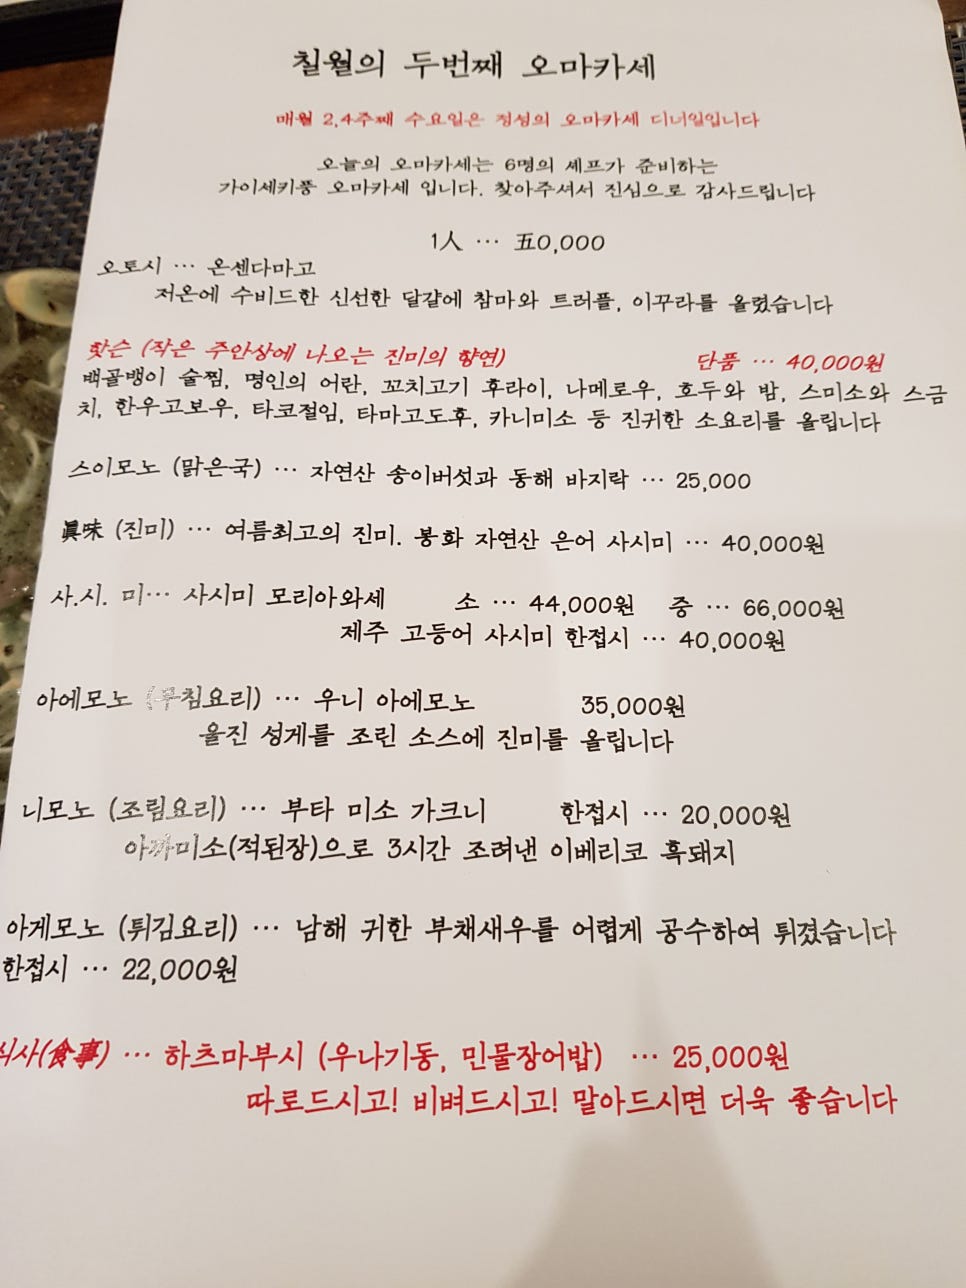 칠월의 두번째 오마카세
매월 2,4주째 수요일은 정성의 오마카세 디너일입니다
오늘의 오마카세는 6명의 셰프가 준비하는
가이세키풍 오마카세 입니다. 찾아주셔서 진심으로 감사드립니다
1人 … 五0,000
오토시 … 온센다마고
저온에 수비드한 신선한 달걀에 참마와 트러플, 이꾸라를 올렸습니다
핫슨 (작은 주안상에 나오는 진미의 향연) 단품 … 40,000원
백골뱅이 술찜, 명인의 어란, 꼬치고기 후라이, 나메로우, 호두와 밤, 스미소와 스금
치, 한우고보우, 타코절임, 타마고도후, 카니미소 등 진귀한 소요리를 올립니다
스이모노 (맑은국) … 자연산 송이버섯과 동해 바지락 … 25,000
眞味 (진미) … 여름최고의 진미. 봉화 자연산 은어 사시미 … 40,000원
사.시. 미… 사시미 모리아와세 소 … 44,000원 중 … 66,000원
제주 고등어 사시미 한접시 … 40,000원
아에모노 (무침요리) … 우니 아에모노 35,000원
울진 성게를 조린 소스에 진미를 올립니다
니모노 (조림요리) … 부타 미소 가크니 한접시 … 20,000원
아까미소(적된장)으로 3시간 조려낸 이베리코 흑돼지
아게모노 (튀김요리) … 남해 귀한 부채새우를 어렵게 공수하여 튀겼습니다
한접시 … 22,000원
식사(食事) … 하츠마부시 (우나기동, 민물장어밥) … 25,000원
따로드시고! 비벼드시고! 말아드시면 더욱 좋습니다